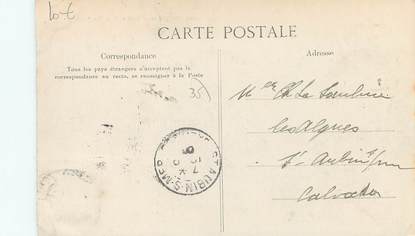 10-t
CARTE POSTALE
Correspondance
Adresse
Tous les pays étrangers n'acceptent pas la
correspondance au recto, se renseigner à la Poste
35
les Algues
St Aubin s/mer
Calvados
ST AUBIN-S-MER